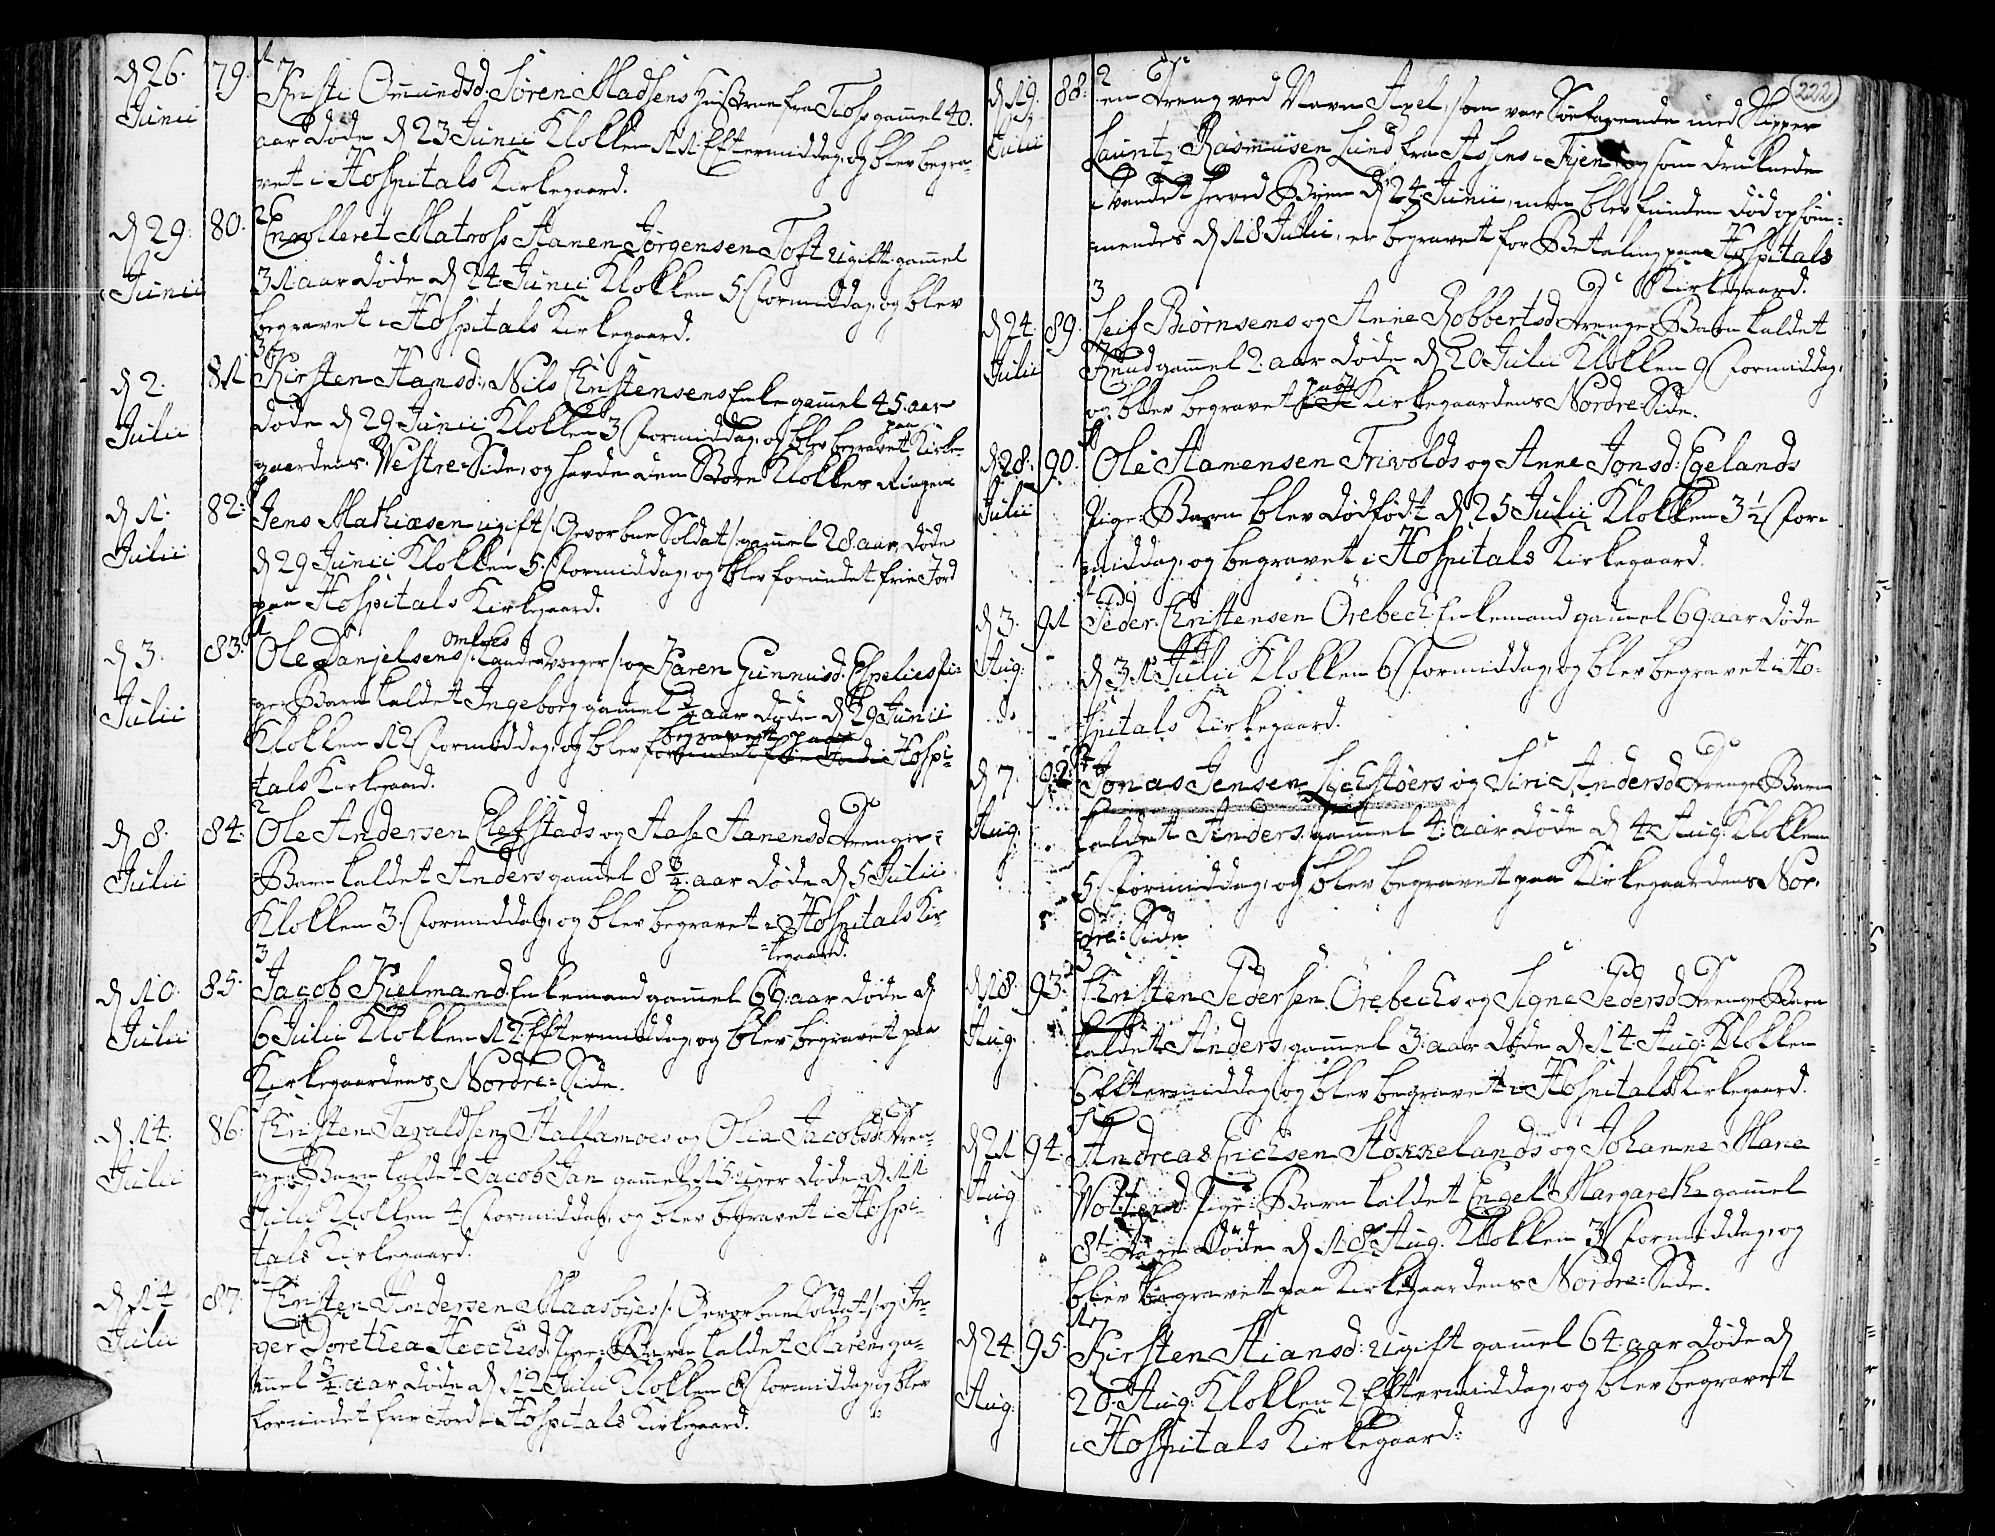 d 26. 79. 1
Junii Kirsti Omundsd: Søren Madsens Hustrue fra Toss gammel 40.
aar døde d 23 Junii Klokken 11. Eftermiddag, og blev begra-
vet i Hospitals Kirkegaard.
d 29. 80. 2
Junii Enrolleret Matross Aanen Jørgensen Toft ugift gammel
31 aar døde d 24 Junii Klokken 5. Formiddag, og blev
begravet i Hospitals Kirkegaard.
d 2. 81 3
Julii Kirsten Hansd: Nils Christensens Enke gammel 45. aar
døde d 29 Junii Klokken 3 Formiddag, og blev begravet paa Kirke-
gaardens Westre-Side, og havde den Store Klokkes Ringen
d 1. 82:
Julii Jens Mathiæsen ugift /: Gevorben Soldat :/ gammel 28. aar, døde
d 29 Junii Klokken 5. Formiddag, og blev forundet frie Jord
paa Hospitals Kirkegaard.
d 3. 83. 1
Julii Ole Danjelsens /: Landeværger :/ og Karen Gunnusd: Espelies Pi-
ge-Barn kaldet Ingeborg gammel 3/4 aar døde d 29 Junii
Klokken 12 Formiddag, og blev begravet paa forundet frie Jord i Hospi-
tals Kirkegaard.
d 8. 84: 2
Julii Ole Andersen Clefstads og Aase Aanensd: Drenge-
Barn kaldet Anders gammel 8 3/4. aar døde d 5 Julii
Klokken 3. Formiddag, og blev begravet i Hospitals Kir-
=kegaard.
d 10. 85. 3
Julii Jacob Kielmand: Enkemand gammel 69. aar døde d
6 Julii Klokken 12. Eftermiddag, og blev begravet paa
Kirkegaardens Nordre-Side.
d 14. 86. 1
Julii Christen Taraldsen Hallamoes og Olia Jacobsd: Dren-
ge-Barn kaldet Jacob Jan gammel 15. uger døde d 11
Julii Klokken 4 Formiddag, og blev begravet i Hospi-
tals Kirkegaard.
d 14 87.
Julii Christen Andersen Maasbyes /: Gevorben Soldat :/ og In-
ger Dorethea Hecchesd: Pige-Barn kaldet Maren ga-
mel 3/4. aar døde d 12 Julii Klokken 8 Formiddag, og blev
forundet frie Jord i Hospitals Kirkegaard.
222
d 19. 88: 2
Julii en Dreng ved Navn Axel, som var Søefarende med Skipper
Launtz Rasmusen Lund fra Assens i Fyen og som druknede
i Vandet herved Byen d 24 Junii, men blev funden død opsvøm-
mendes d 18 Julii, er begravet for Betaling paa Hospitals
Kirkegaard.
d 24. 89. 3
Julii Leif Biørnsens og Anne Robbertsd: Drenge-Barn kaldet
Knud gammel 2. aar døde d 20 Julii Klokken 9 Formiddag,
og blev begravet paa Kirkegaardens Nordre-Side.
d 28. 90.
Julii Ole Aanensen Trivolds og Anne Jonsd: Egelands
Pige-Barn blev dødfødt d 25 Julii Klokken 3 1/2 For-
middag, og begravet i Hospitals Kirkegaard.
d 3. 91 1
Aug: Peder Christensen Ørebech Enkemand gammel 69 aar døde
d 31 Julii Klokken 6 Formiddag, og blev begravet i Ho-
spitals Kirkegaard.
d 7. 92:
Aug: Jonas Jensen og Siri Andersd: Drenge-Barn
kaldet Anders gammel 4. aar døde d 4 Aug: Klokken
5 Formiddag, og blev begravet paa Kirkegaardens Nor-
dre-Side
d 18. 93. 3
Aug: Christen Pedersen Ørebechs og Signe Pedersd: Drenge-Barn
kaldet Anders, gammel 3. aar døde d 14. Aug: Klokken
6 Eftermiddag, og blev begravet i Hospitals Kirkegaard.
d 21 94.
Aug: Andreas Erichsen Høxxelands og Johanne Marie
Pige-Barn kaldet Engel Margarethe gammel
8te Dage døde d 18 Aug. Klokken 3 Formiddag, og
blev begravet paa Kirkegaardens Nordre-Side.
d 24. 95. 1
Aug: Kirsten Stiansd: ugift gammel 64. aar døde d
20. Aug: Klokken 2 Eftermiddag, og blev begravet
i Hospitals Kirkegaard: